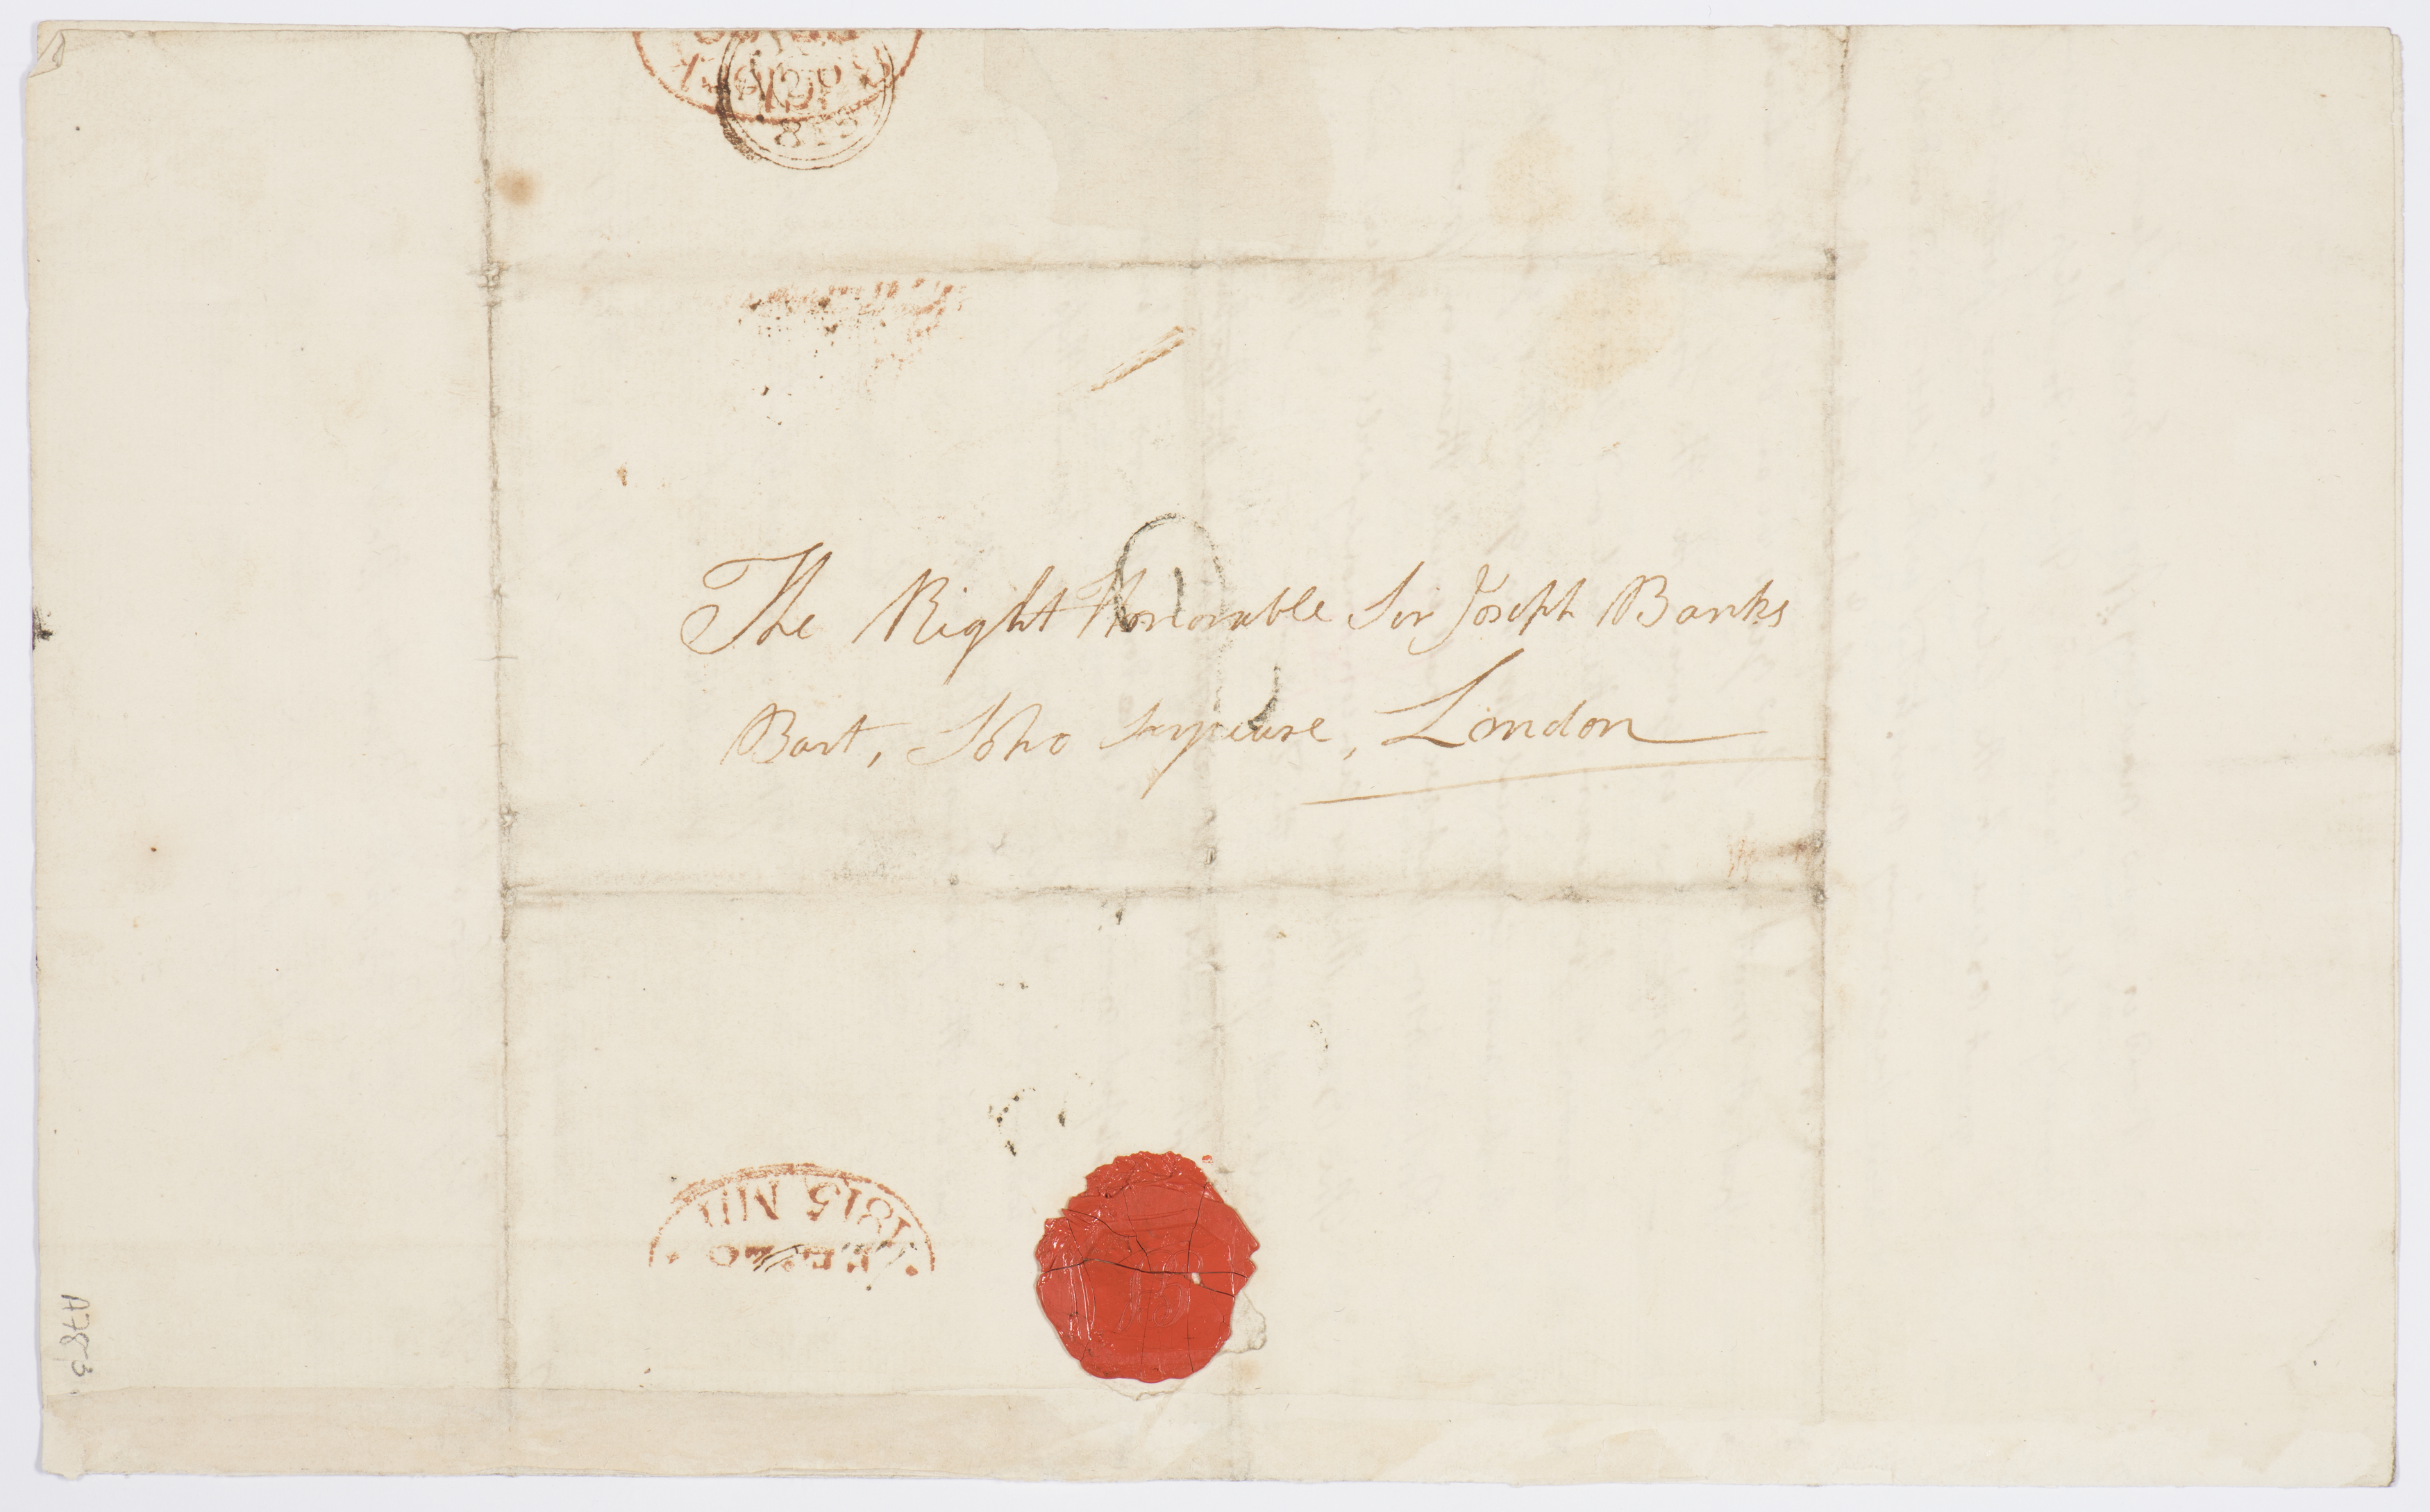 The Right Honorable Sir Joseph Banks
Bart, Soho Squeare, London
1815
A783